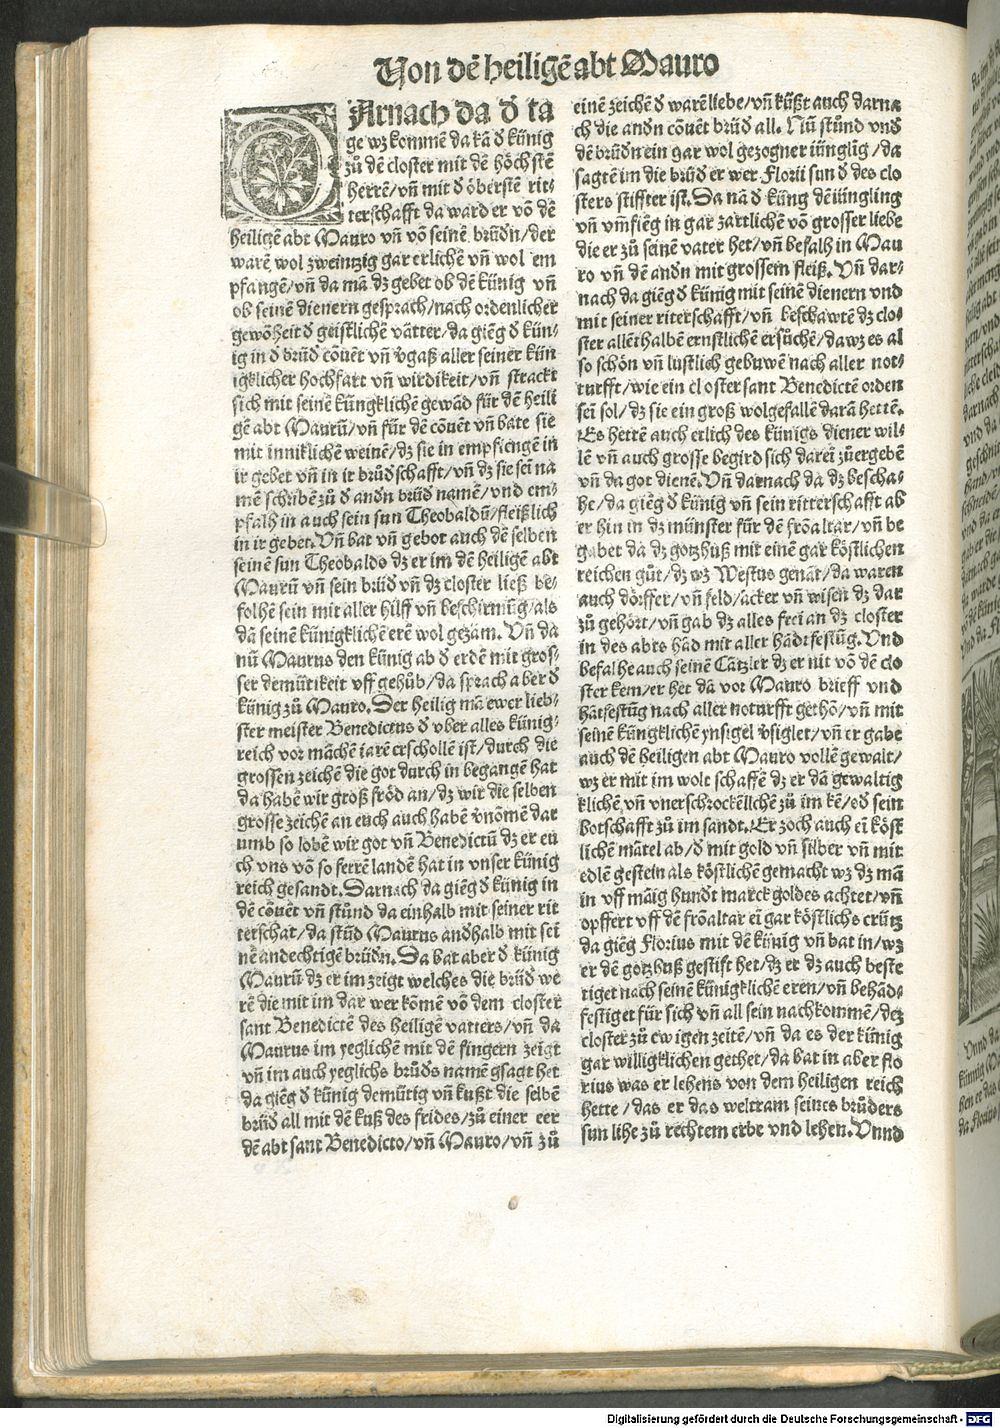 Von dē heiligē abt Mauro
DArnach da ď ta
ge wz kommē da kā ď kü̈nig
zů dē closter mit dē höchstē
herrē/vñ mit ď öberstē rit⸗
terschafft da ward er vō dē
heiligē abt Mauro vñ vō seinē brůdn/der
warē wol zweintzig gar erlichē vñ wol em
pfangē/vñ da mā dz gebet ob dē künig vñ
ob seinē dienern gesprach/nach ordenlicher
gewōheit ď geistlichē vätter/da giēg ď kün⸗
ig in ď brüď cōuēt vñ v̉gaß aller seiner kün
igklicher hochfart vñ wirdikeit/vñ strackt
sich mit seinē küngklichē gewād für dē heili
gē abt Maurū/vñ für dē cōuēt vñ bate sie
mit inniklichē weinē/dz sie in empfiengē in
ir gebet vñ in ir brůdschafft/vñ dz sie sei na
mē schribē zů ď andn brüď namē/vnd em⸗
pfalh in auch sein sun Theobaldū/fleißlich
in ir gebet. Vñ bat vñ gebot auch dē selben
seinē sun Theobaldo dz er im dē heiligē abt
Maurū vñ sein brüď vñ dz closter ließ be⸗
folhē sein mit aller hilff vñ beschirmūg/als
dā seinē künigklichē erē wol gezam. Vñ da
nū Maurus den künig ab ď erdē mit gros⸗
ser demütikeit vff gehůb/da sprach aber ď
künig zů Mauro. Der heilig mā ewer lieb⸗
ster meister Benedictus ď vber alles künig⸗
reich vor māchē iarē erschollē ist/durch die
grossen zeichē die got durch in begangē hat
da habē wir groß fröd an/dz wir die selben
grosse zeichē an euch auch habē v̉nōmē dar
umb so lobē wir got vñ Benedictū dz er eu
ch vns vō so ferrē landē hat in vnser künig
reich gesandt. Darnach da giēg ď künig in
dē cōuēt vñ stůnd da einhalb mit seiner rit
terschat/da stůd Maurus andhalb mit sei
nē andechtigē brüdn. Da bat aber ď künig
Maurū dz er im zeigt welches die brüď we
rē die mit im dar wer kōmē vō dem closter
sant Benedictē des heiligē vatters/vñ da
Maurus im yeglichē mit dē fingern zeigt
vñ im auch yeglichs brůďs namē gsagt het
da giēg ď künig demütig vñ kußt die selbē
brüď all mit dē kuß des frides/zů einer eer
dē abt sant Benedicto/vñ Mauro/vñ zů
einē zeichē ď warē liebe/vñ küßt auch darna
ch die andn cōuēt brüď all. Nū stůnd vnď
dē brüdn ein gar wol gezogner iünglig/da
sagtē im die brüď er wer Florii sun ď des clo
sters stiffter ist. Da nā ď küng dē iüngling
vñ vmfiēg in gar zartlichē vō grosser liebe
die er zů seinē vater het/vñ befalh in Mau
ro vñ dē andn mit grossem fleiß. Vñ dar⸗
nach da giēg ď künig mit seinē dienern vnd
mit seiner riterschafft/vñ beschawtē dz clo⸗
ster allēthalbē ernstlichē ersůchē/da wz es al
so schön vñ lustlich gebuwē nach aller not⸗
turfft/wie ein closter sant Benedictē orden
sei sol/dz sie ein groß wolgefallē darā hettē.
Es hettē auch erlich des künigs diener wil⸗
lē vñ auch grosse begird sich darei zůergebē
vñ da got dienē. Vñ darnach da dz bescha⸗
he/da giēg ď künig vñ sein ritterschafft ab
er hin in dz münster für dē frōaltar/vñ be
gabet da dz gotzhuß mit einē gar köstlichen
reichen gůt/dz wz Westus genāt/da waren
auch dörffer/vñ feld/acker vñ wisen dz dar
zů gehört/vñ gab dz alles frei an dz closter
in des abts hād mit aller hādtfestūg. Vnd
befalhe auch seinē Cātzler dz er nit vō dē clo
ster kem/er het dā vor Mauro brieff vnd
hātfestūg nach aller noturfft gethō/vñ mit
seinē küngklichē ynsigel v̉siglet/vñ er gabe
auch dē heiligen abt Mauro vollē gewalt/
wz er mit im wolt schaffē dz er dā gewaltig
klichē vñ vnerschrockēllichē zů im kē/oď sein
botschafft zů im sandt. Er zoch auch ei köst
lichē mātel ab/ď mit gold vñ silber vñ mit
edlē gestein als köstlichē gemacht wz dz mā
in vff māig hundt marck goldes achtet/vñ
opffert vff dē frōaltar ei gar köstlichs crütz
da giēg Florius mit dē künig vñ bat in/wz
er dē gotzhuß gestift het/dz er dz auch beste
tiget nach seinē künigklichē eren/vñ behād⸗
festiget für sich vñ all sein nachkommē/dez
closter zů ewigen zeitē/vñ da es der künig
gar willigklichen gethet/da bat in aber flo
rius was er lehens von dem heiligen reich
hette/das er das weltram seines brůders
sun lihe zů rechtem erbe vnd lehen. Vnnd
Digitalisierung gefördert durch die Deutsche Forschungsgemeinschaft - DFG